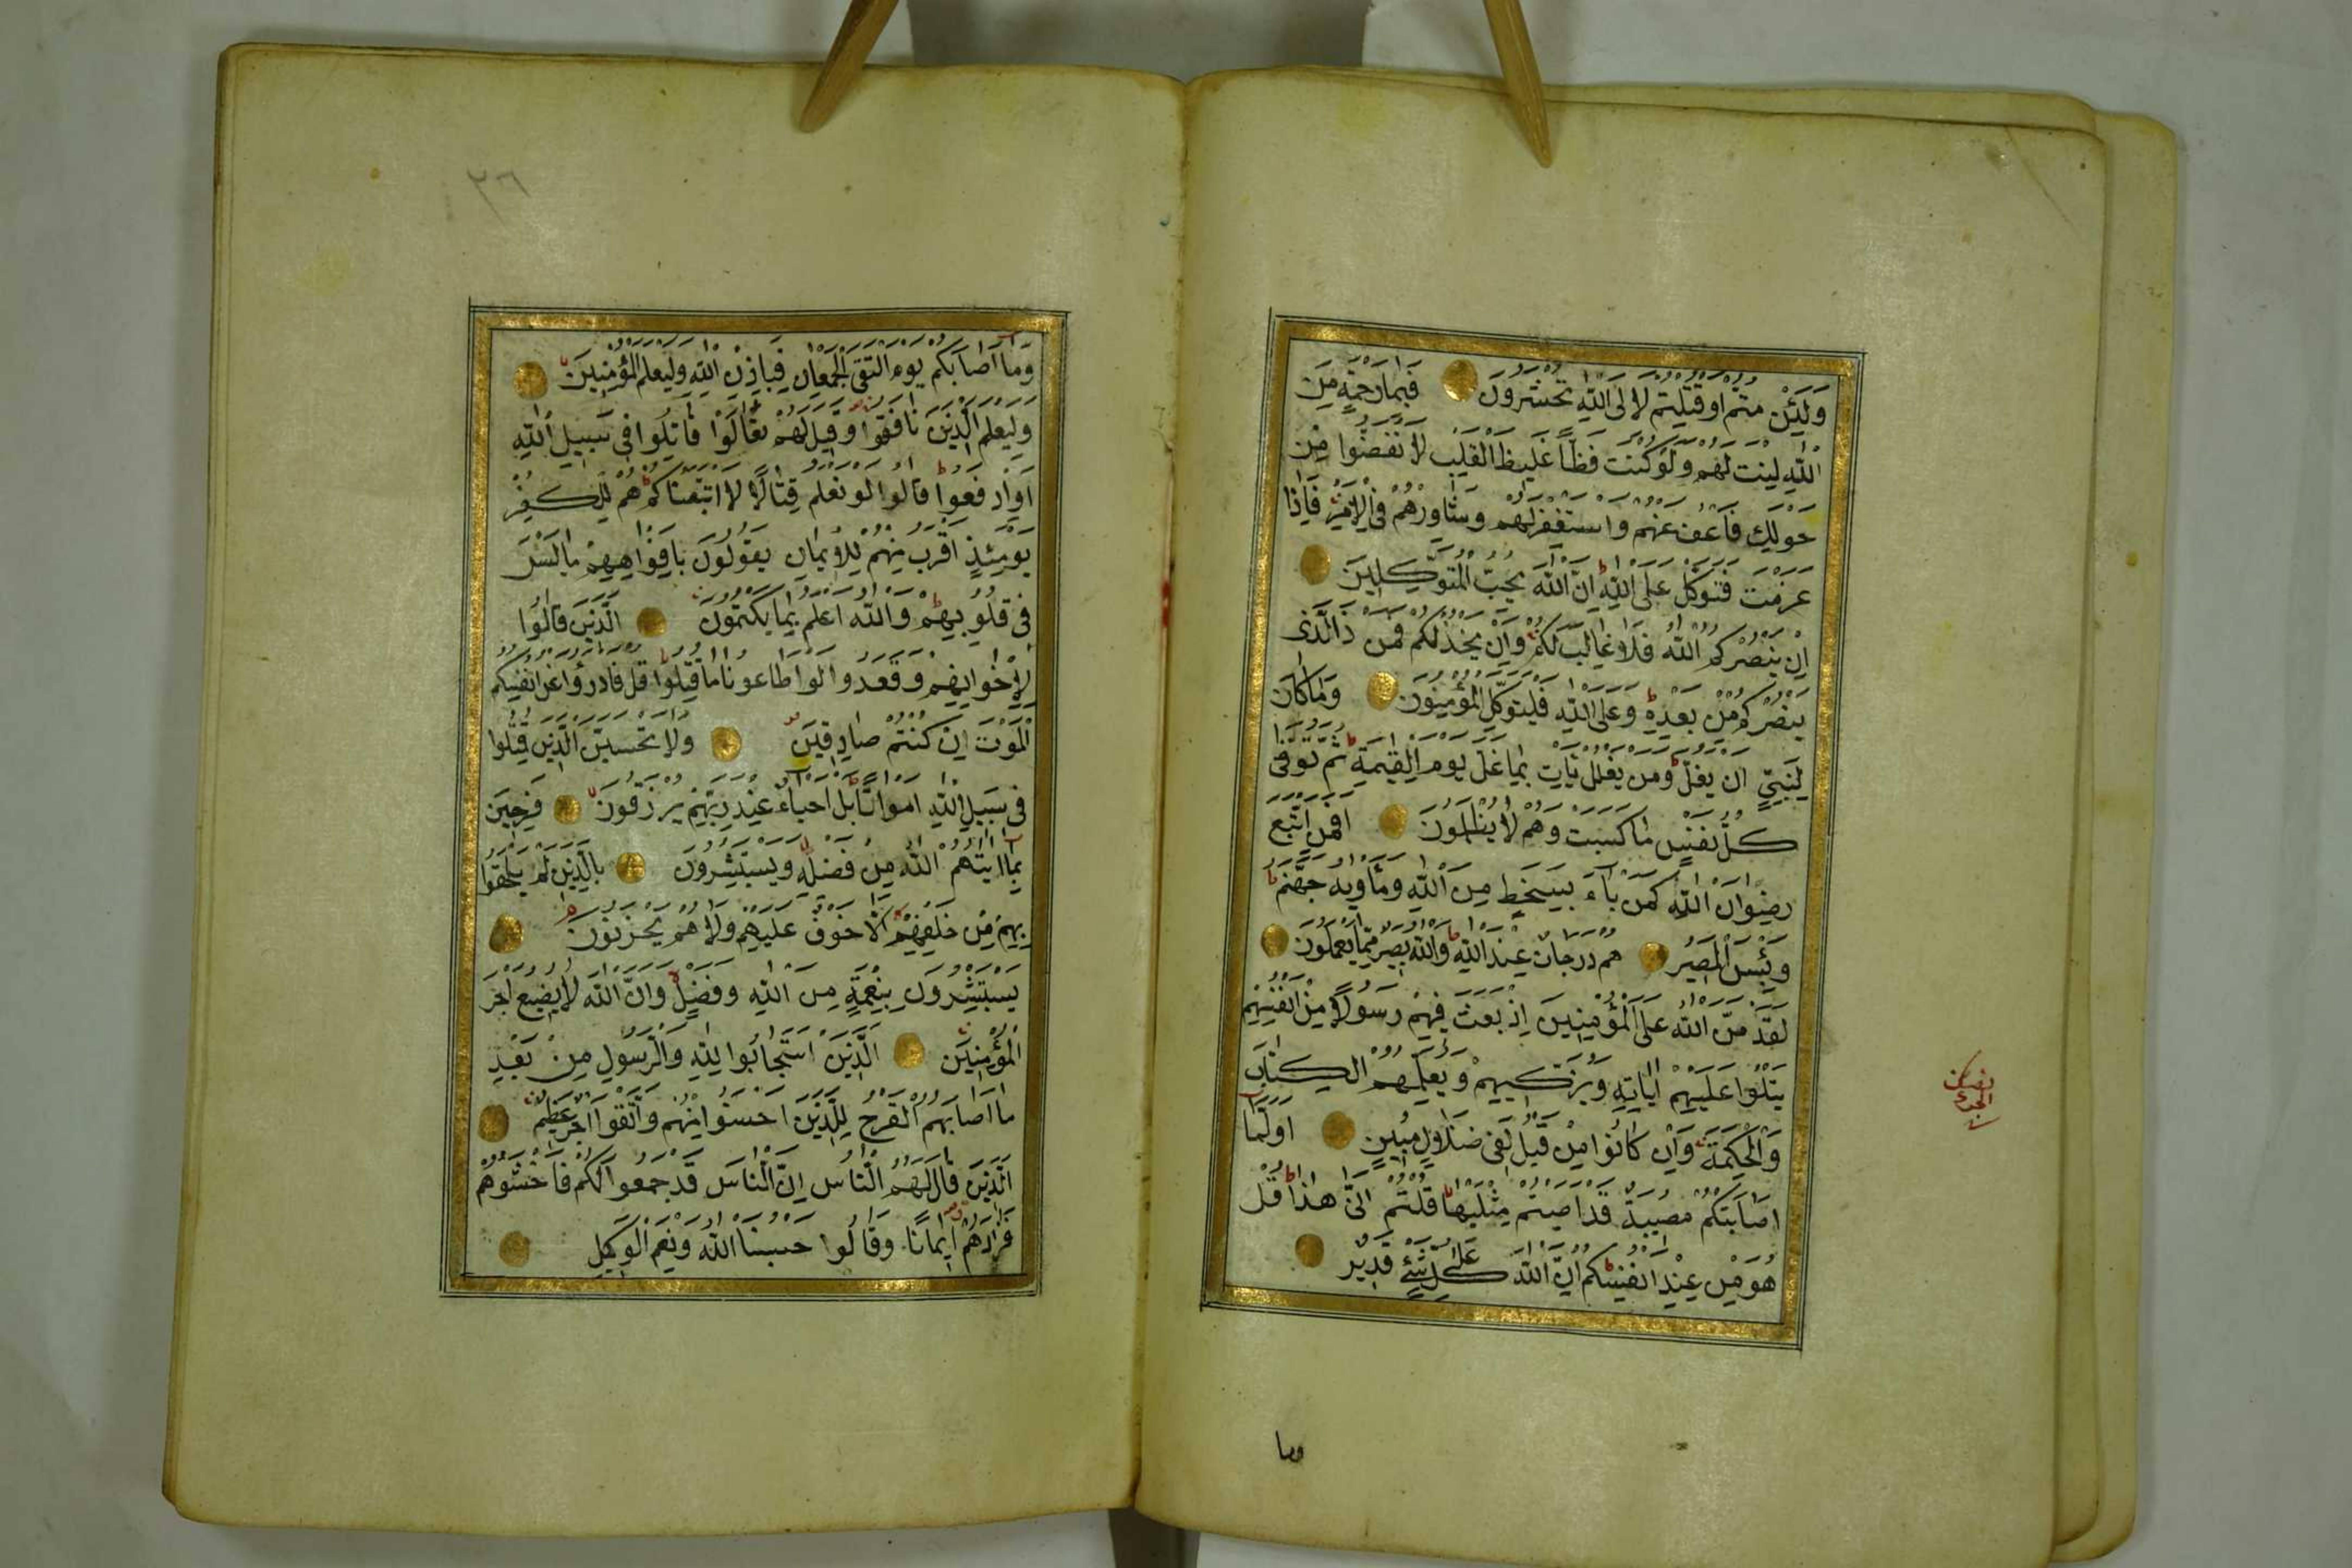 وَلَئِنْ مُتُّمْ اَوْ قُتِلْتُمْ لَاِلَى اللّٰهِ تُحْشَرُونَ فَبِمَا رَحْمَةٍ مِنَ
اللّٰهِ لِنْتَ لَهُمْ وَلَوْ كُنْتَ فَظًّا غَلِيظَ الْقَلْبِ لَانْفَضُّوا مِنْ
حَوْلِكَ فَاعْفُ عَنْهُمْ وَاسْتَغْفِرْ لَهُمْ وَشَاوِرْهُمْ فِى الْاَمْرِ فَاِذَا
عَزَمْتَ فَتَوَكَّلْ عَلَى اللّٰهِ اِنَّ اللّٰهَ يُحِبُّ الْمُتَوَكِّلِينَ
اِنْ يَنْصُرْكُمُ اللّٰهُ فَلَا غَالِبَ لَكُمْ وَاِنْ يَخْذُلْكُمْ فَمَنْ ذَا الَّذِى
يَنْصُرُكُمْ مِنْ بَعْدِهِ وَعَلَى اللّٰهِ فَلْيَتَوَكَّلِ الْمُؤْمِنُونَ وَمَا كَانَ
لِنَبِىٍّ اَنْ يَغُلَّ وَمَنْ يَغْلُلْ يَاْتِ بِمَا غَلَّ يَوْمَ الْقِيٰمَةِ ثُمَّ تُوَفّٰى
كُلُّ نَفْسٍ مَا كَسَبَتْ وَهُمْ لَا يُظْلَمُونَ اَفَمَنِ اتَّبَعَ
رِضْوَانَ اللّٰهِ كَمَنْ بَآءَ بِسَخَطٍ مِنَ اللّٰهِ وَمَاْوٰيهُ جَهَنَّمُ
وَبِئْسَ الْمَصِيرُ هُمْ دَرَجَاتٌ عِنْدَ اللّٰهِ وَاللّٰهُ بَصِيرٌ بِمَا يَعْمَلُونَ
لَقَدْ مَنَّ اللّٰهُ عَلَى الْمُؤْمِنِينَ اِذْ بَعَثَ فِيهِمْ رَسُولًا مِنْ اَنْفُسِهِمْ
يَتْلُوا عَلَيْهِمْ اٰيَاتِهِ وَيُزَكِّيهِمْ وَيُعَلِّمُهُمُ الْكِتَابَ
وَالْحِكْمَةَ وَاِنْ كَانُوا مِنْ قَبْلُ لَفِى ضَلَالٍ مُبِينٍ اَوَلَمَّا
اَصَابَتْكُمْ مُصِيبَةٌ قَدْ اَصَبْتُمْ مِثْلَيْهَا قُلْتُمْ اَنّٰى هٰذَا قُلْ
هُوَ مِنْ عِنْدِ اَنْفُسِكُمْ اِنَّ اللّٰهَ عَلٰى كُلِّ شَىْءٍ قَدِيرٌ
وما
٢٦
وَمَا اَصَابَكُمْ يَوْمَ الْتَقَى الْجَمْعَانِ فَبِاِذْنِ اللّٰهِ وَلِيَعْلَمَ الْمُؤْمِنِينَ
وَلِيَعْلَمَ الَّذِينَ نَافَقُوا وَقِيلَ لَهُمْ تَعَالَوْا قَاتِلُوا فِى سَبِيلِ اللّٰهِ
اَوِ ادْفَعُوا قَالُوا لَوْ نَعْلَمُ قِتَالًا لَاتَّبَعْنَاكُمْ هُمْ لِلْكُفْرِ
يَوْمَئِذٍ اَقْرَبُ مِنْهُمْ لِلْاِيمَانِ يَقُولُونَ بِاَفْوَاهِهِمْ مَا لَيْسَ
فِى قُلُوبِهِمْ وَاللّٰهُ اَعْلَمُ بِمَا يَكْتُمُونَ الَّذِينَ قَالُوا
لِاِخْوَانِهِمْ وَقَعَدُوا لَوْ اَطَاعُونَا مَا قُتِلُوا قُلْ فَادْرَؤُا عَنْ اَنْفُسِكُمُ
الْمَوْتَ اِنْ كُنْتُمْ صَادِقِينَ وَلَا تَحْسَبَنَّ الَّذِينَ قُتِلُوا
فِى سَبِيلِ اللّٰهِ اَمْوَاتًا بَلْ اَحْيَآءٌ عِنْدَ رَبِّهِمْ يُرْزَقُونَ فَرِحِينَ
بِمَا اٰتٰيهُمُ اللّٰهُ مِنْ فَضْلِهِ وَيَسْتَبْشِرُونَ بِالَّذِينَ لَمْ يَلْحَقُوا
بِهِمْ مِنْ خَلْفِهِمْ اَلَّا خَوْفٌ عَلَيْهِمْ وَلَا هُمْ يَحْزَنُونَ
يَسْتَبْشِرُونَ بِنِعْمَةٍ مِنَ اللّٰهِ وَفَضْلٍ وَاَنَّ اللّٰهَ لَا يُضِيعُ اَجْرَ
الْمُؤْمِنِينَ الَّذِينَ اسْتَجَابُوا لِلّٰهِ وَالرَّسُولِ مِنْ بَعْدِ
مَا اَصَابَهُمُ الْقَرْحُ لِلَّذِينَ اَحْسَنُوا مِنْهُمْ وَاتَّقَوْا اَجْرٌ عَظِيمٌ
الَّذِينَ قَالَ لَهُمُ النَّاسُ اِنَّ النَّاسَ قَدْ جَمَعُوا لَكُمْ فَاخْشَوْهُمْ
فَزَادَهُمْ اِيمَانًا وَقَالُوا حَسْبُنَا اللّٰهُ وَنِعْمَ الْوَكِيلُ